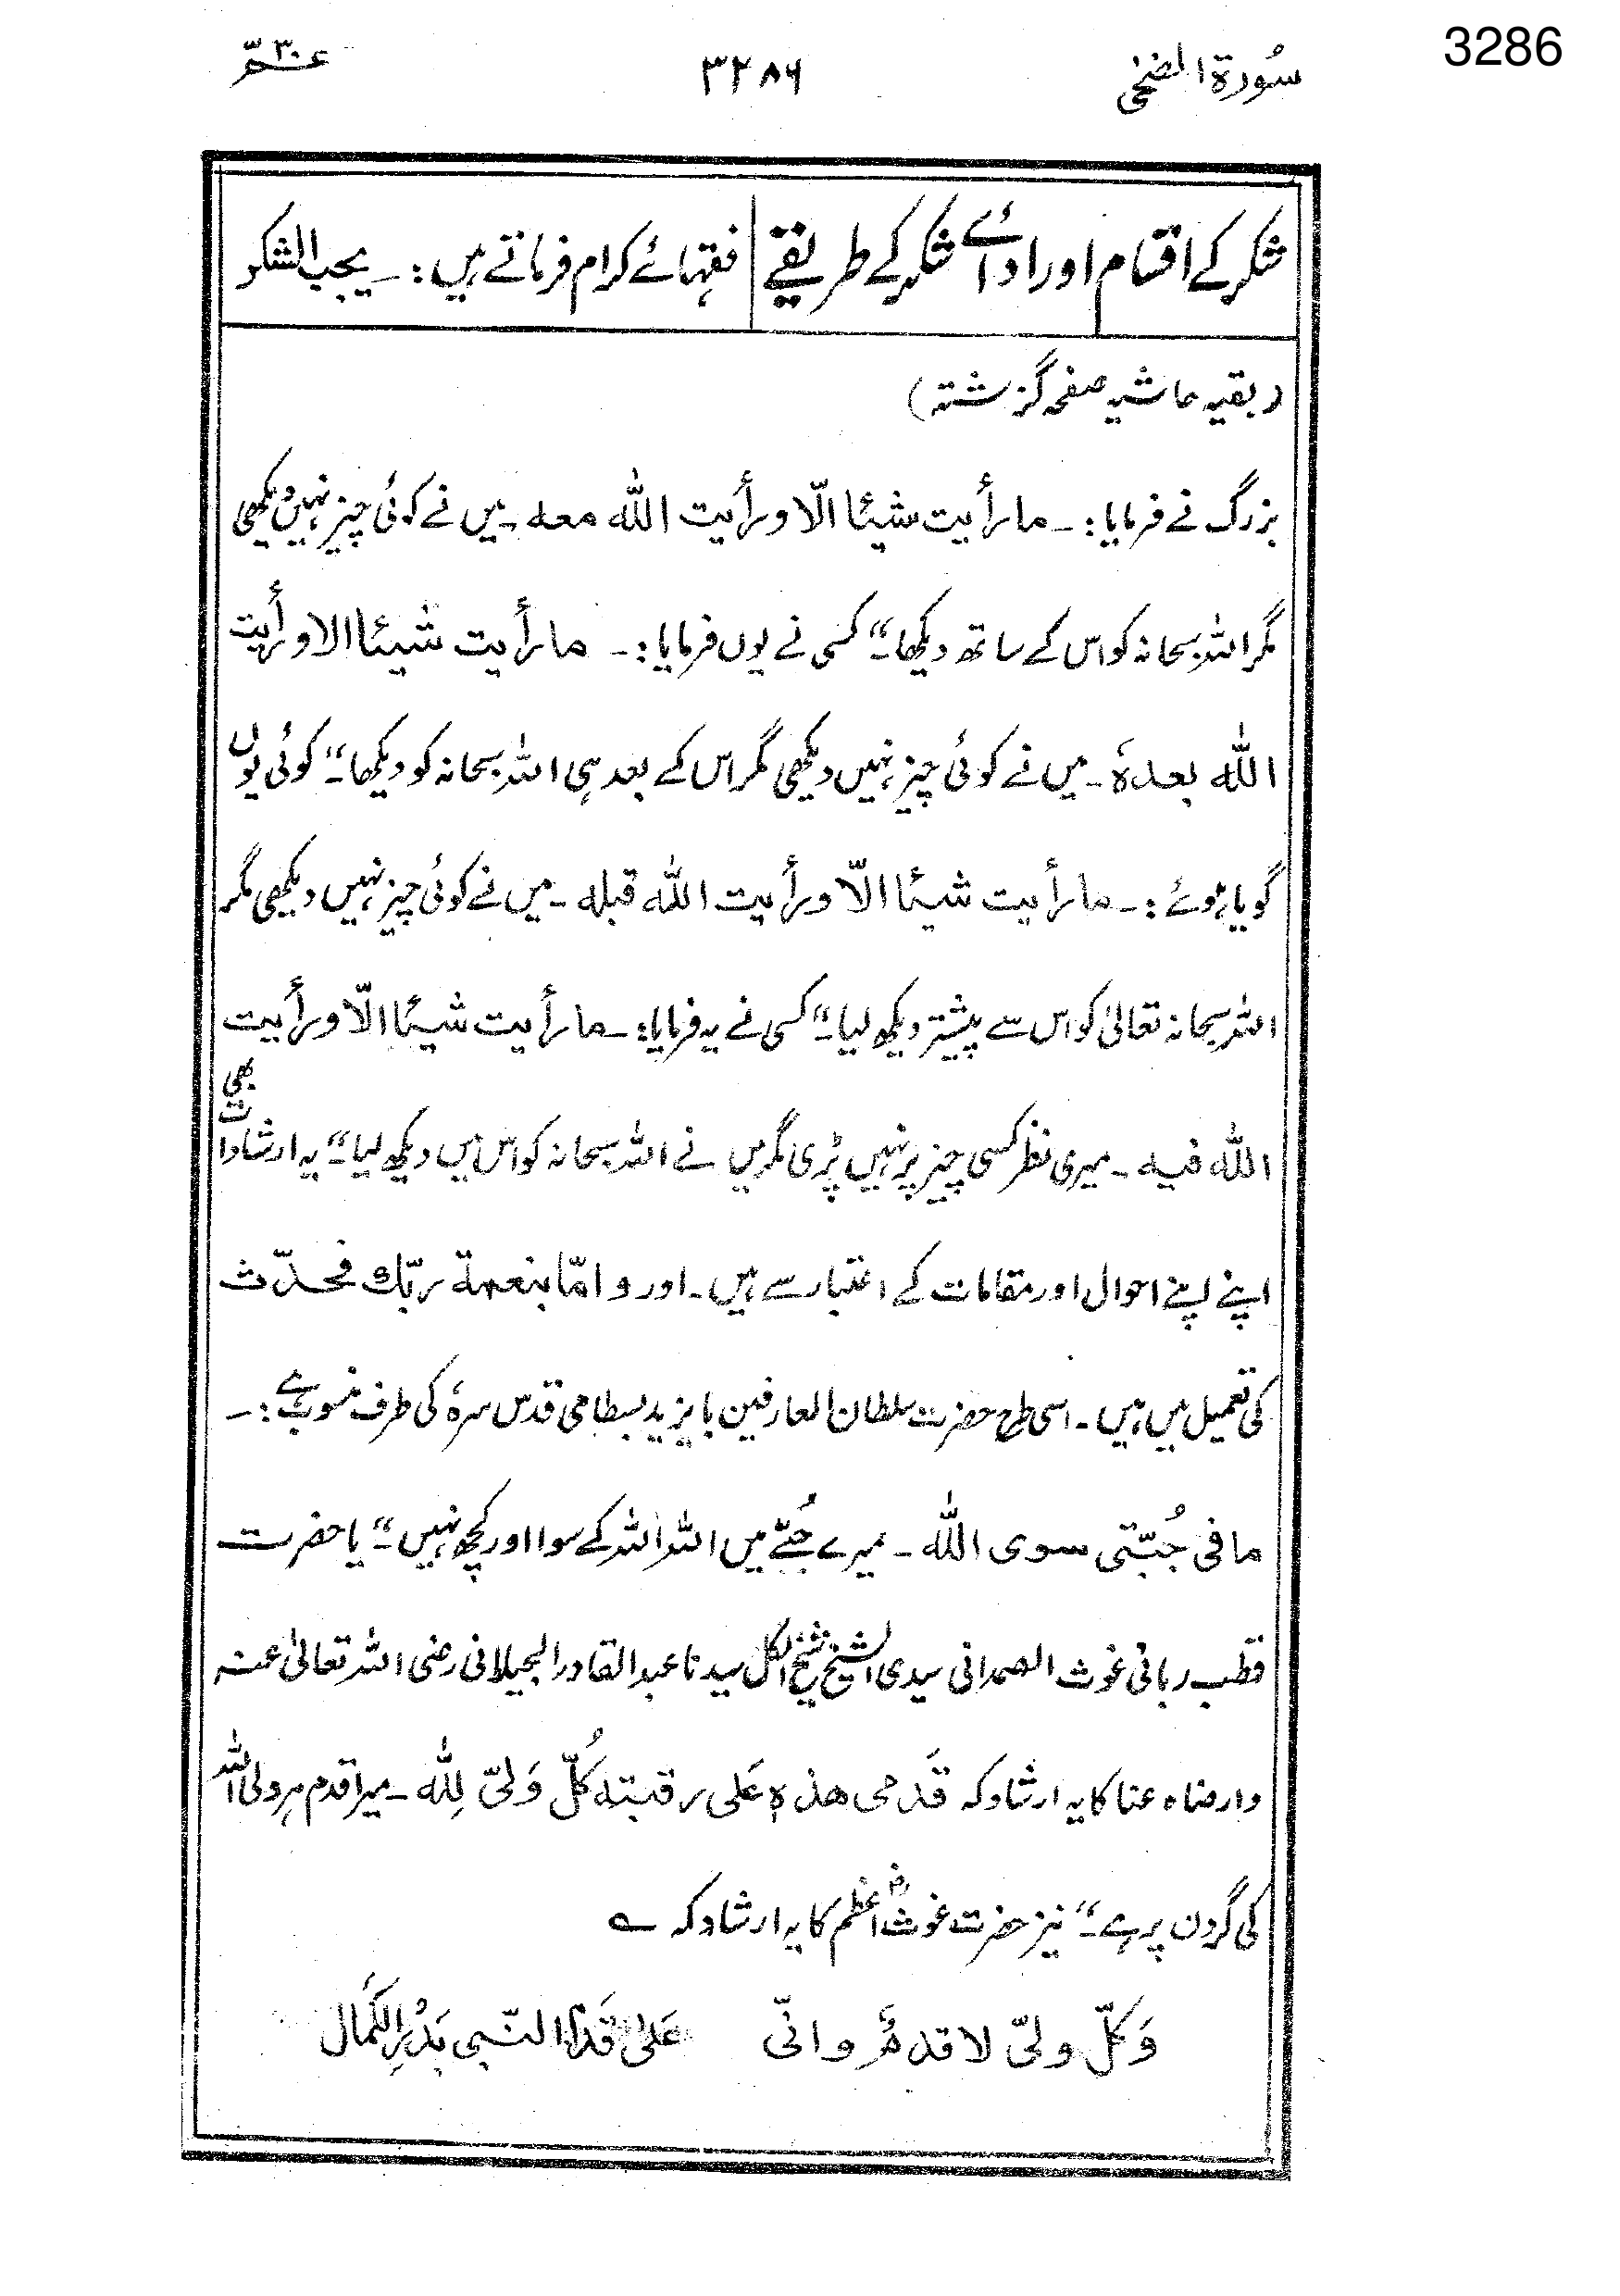 3286
سُورۃ الضحٰی ۳۲۸۶ عمّ ۳۰
شکر کے اقسام اور ادائے شکر کے طریقے فقہائے کرام فرماتے ہیں :۔ یجب الشکر
(بقیہ حاشیہ صفحہ گزشتہ)
بزرگ نے فرمایا :۔ ما رأیت شیئا الّا ورأیت اللّٰہ معہ ۔ میں نے کوئی چیز نہیں دیکھی
مگر اللہ سبحانہ کو اس کے ساتھ دیکھا ۔" کسی نے یوں فرمایا :۔ ما رأیت شیئا الا ورأیت
اللّٰہ بعدہٗ ۔ میں نے کوئی چیز نہیں دیکھی مگر اس کے بعد ہی اللہ سبحانہ کو دیکھا ۔" کوئی یوں
گویا ہوئے :۔ ما رأیت شیئا الّا ورأیت اللّٰہ قبلہ ۔ میں نے کوئی چیز نہیں دیکھی مگر
اللہ سبحانہ تعالیٰ کو اس سے پیشتر دیکھ لیا ۔" کسی نے یہ فرمایا :۔ ما رأیت شیئا الّا ورأیت
اللّٰہ فیہ ۔ میری نظر کسی چیز پر نہیں پڑی مگر میں نے اللہ سبحانہ کو اس میں دیکھ لیا ۔" یہ ارشادات بھی
اپنے اپنے احوال اور مقامات کے اعتبار سے ہیں ۔ اور و امّا بنعمۃ ربّك فحدّث
کی تعمیل میں ہیں ۔ اسی طرح حضرت سلطان العارفین بایزید بسطامی قدس سرہٗ کی طرف منسوب ہے :۔
ما فی جُبّتی سوی اللّٰہ ۔ میرے جُبّے میں اللہ اللہ کے سوا اور کچھ نہیں ۔" یا حضرت
قطب ربانی غوث الصمدانی سیدی الشیخ شیخ الکل سیدنا عبدالقادر الجیلانی رضی اللہ تعالیٰ عنہ
وارضاہ عنا کا یہ ارشاد کہ قَدَمی ھذہٖ عَلی رقبتہ کُلّ وَلیّ لِلّٰہ ۔ میرا قدم ہر ولی اللہ
کی گردن پر ہے ۔" نیز حضرت غوث اعظمؓ کا یہ ارشاد کہ ؎
وَکلّ ولیّ لا قدمٌ وانّی عَلیٰ قَدَم النّبی بَدْرِ الکَمال